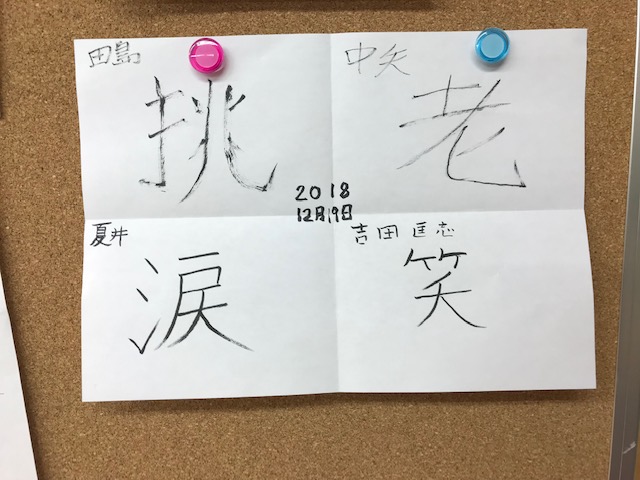 田島
挑
中矢
老
2018
12月19日
夏井
涙
吉田 匡志
笑